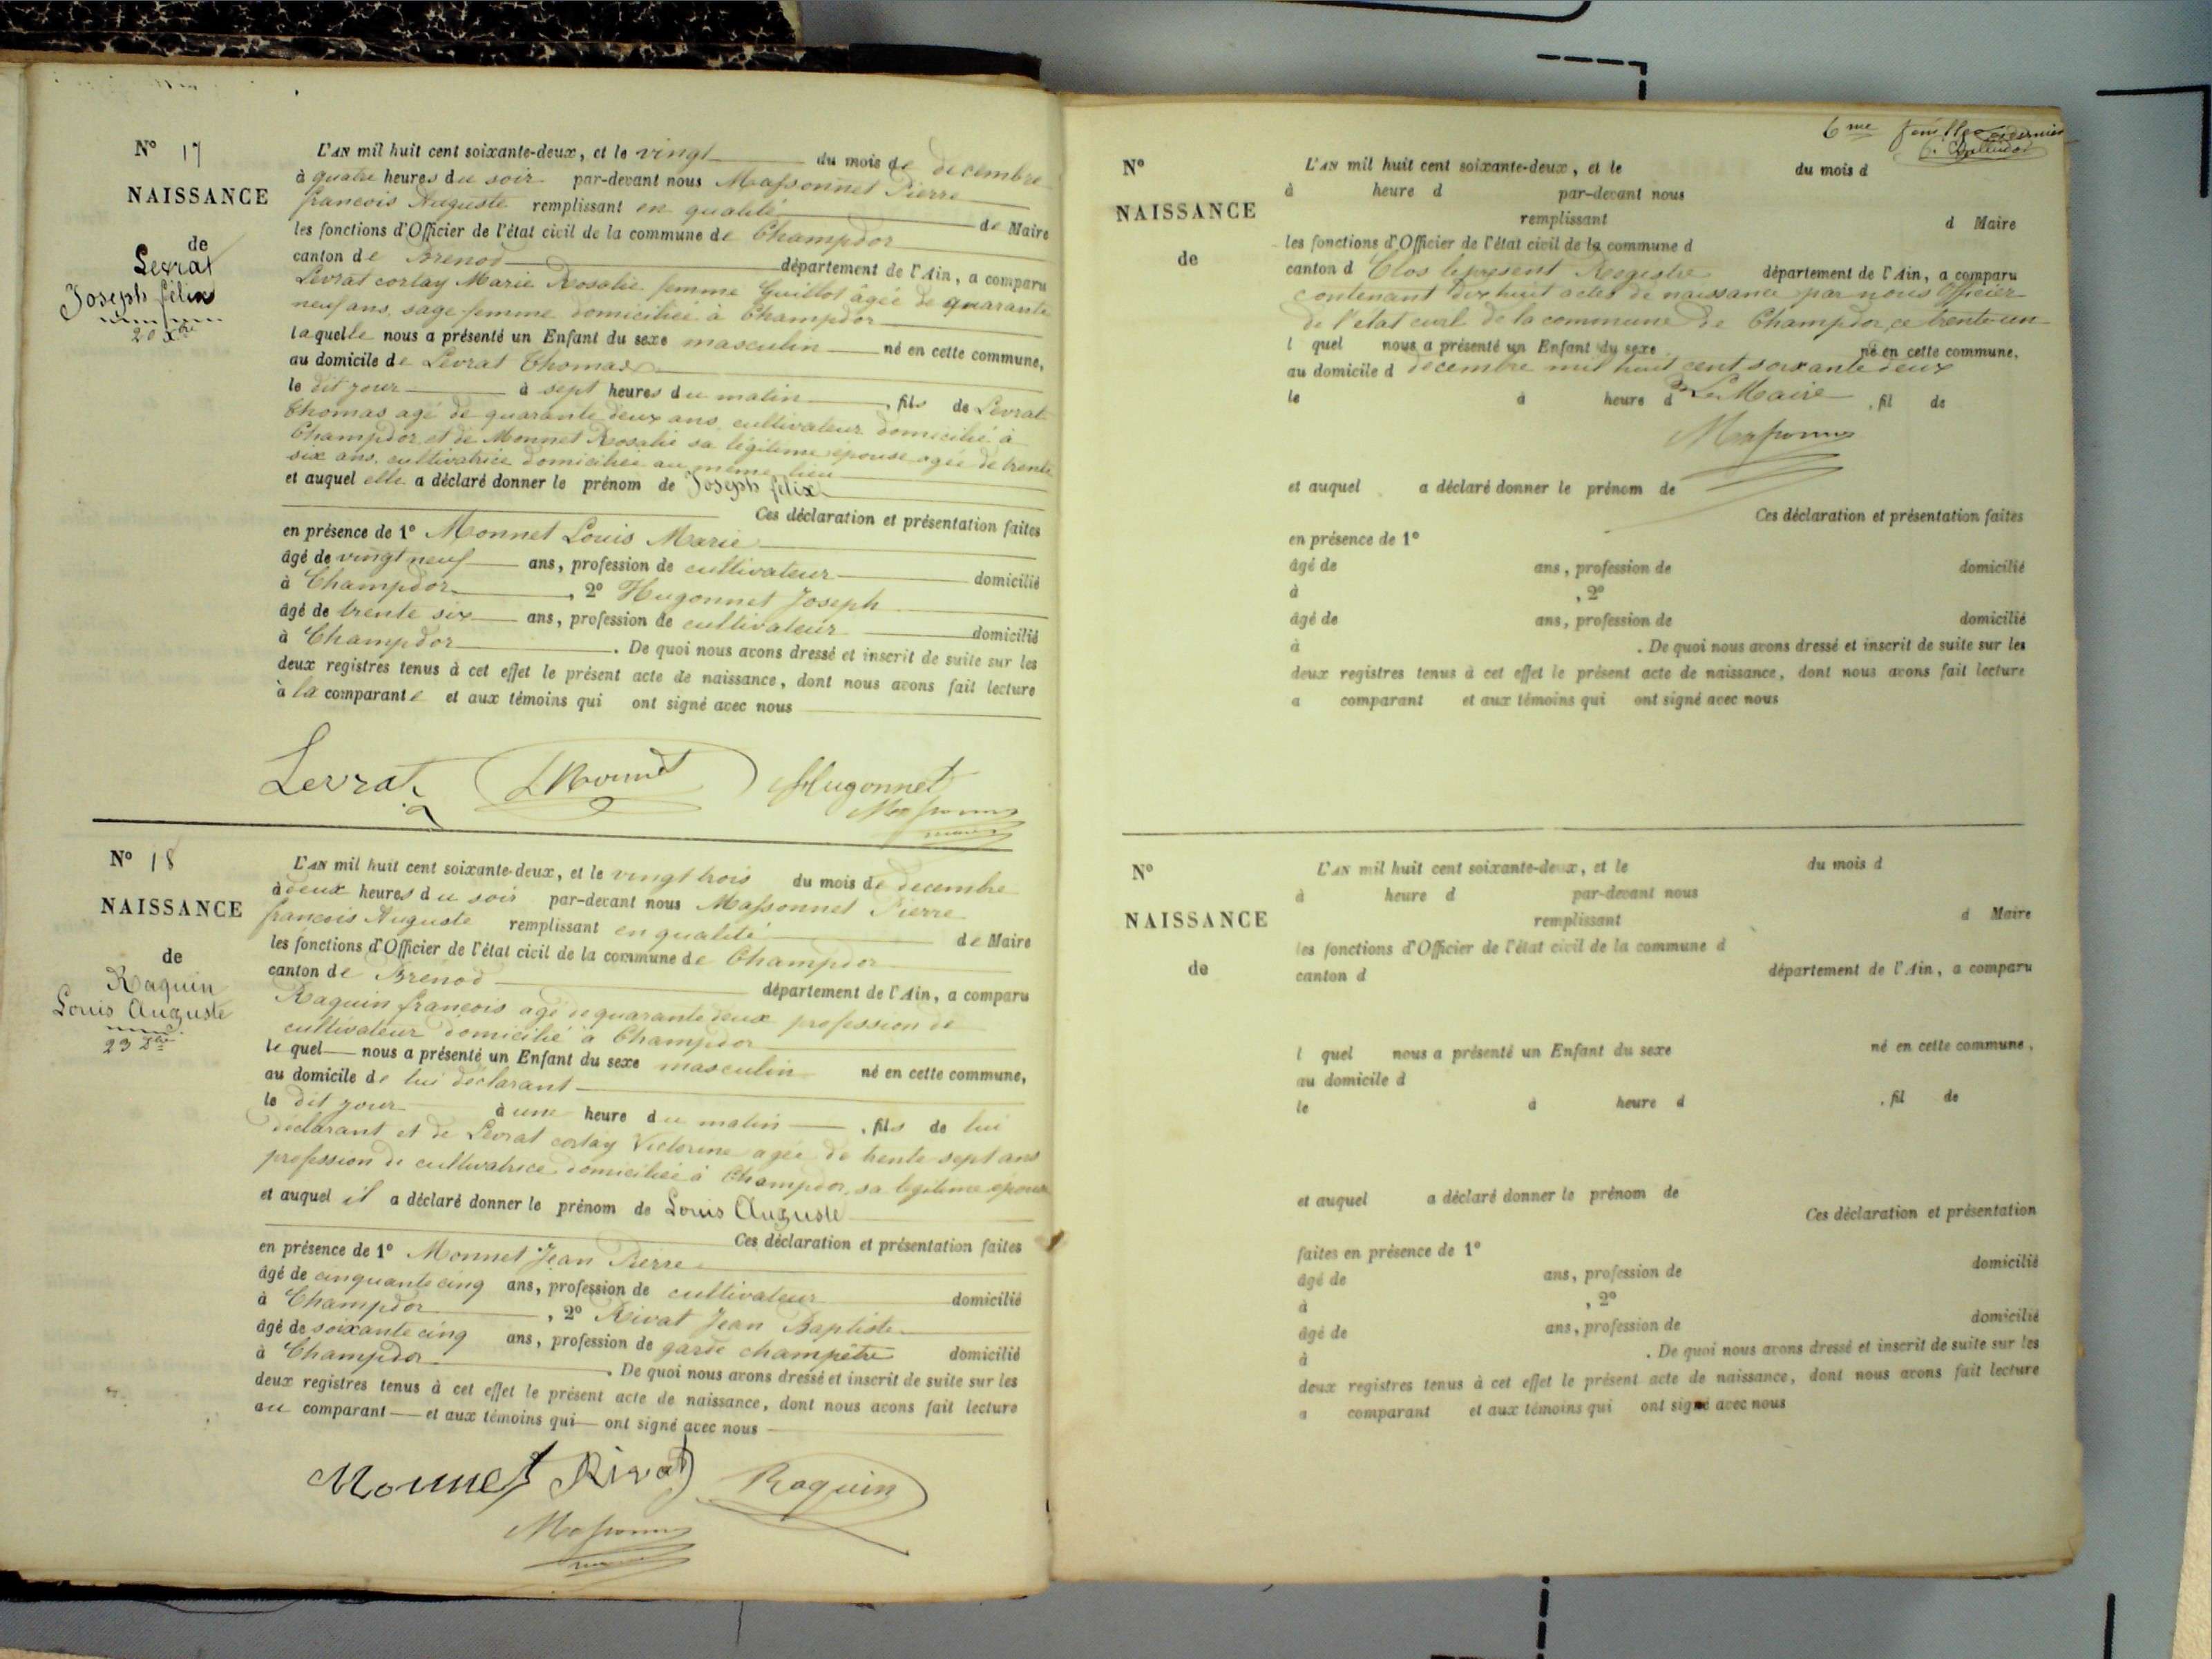 N° 17
NAISSANCE
de
Levrat
Joseph félix
20 Xbre
L'AN mil huit cent soixante-deux, et le vingt du mois de decembre
à quatre heures du soir par-devant nous Massonnet Pierre
francois Auguste remplissant en qualité de Maire
les fonctions d'Officier de l'état civil de la commune de Champdor
canton de Brenod département de l'Ain, a comparu
Levrat corlay Marie Rosalie femme Guillot âgée de quarante
neuf ans, sage femme domiciliée à Champdor
laquelle nous a présenté un Enfant du sexe masculin né en cette commune,
au domicile de Levrat Thomas
le dit jour à sept heures du matin, fils de Levrat
Thomas agé de quarante deux ans, cultivateur domicilié à
Champdor et de Monnet Rosalie sa légitime épouse agée de trente
six ans, cultivatrice domiciliée au même lieu
et auquel elle a déclaré donner le prénom de Joseph félix
Ces déclaration et présentation faites
en présence de 1° Monnet Louis Marie
âgé de vingt neuf ans, profession de cultivateur domicilié
à Champdor, 2° Hugonnet Joseph
âgé de trente six ans, profession de cultivateur domicilié
à Champdor. De quoi nous avons dressé et inscrit de suite sur les
deux registres tenus à cet effet le présent acte de naissance, dont nous avons fait lecture
à la comparante et aux témoins qui ont signé avec nous
Levrat LMonnet Hugonnet
Massonnet
maire
N° 18
NAISSANCE
de
Raquin
Louis Auguste
23 Xbre
L'AN mil huit cent soixante-deux, et le vingt trois du mois de decembre
à deux heures du soir par-devant nous Massonnet Pierre
francois Auguste remplissant en qualité de Maire
les fonctions d'Officier de l'état civil de la commune de Champdor
canton de Brenod département de l'Ain, a comparu
Raquin francois agé de quarante deux profession de
cultivateur domicilié à Champdor
lequel nous a présenté un Enfant du sexe masculin né en cette commune,
au domicile de lui déclarant
le dit jour à une heure du matin, fils de lui
déclarant et de Levrat corlay Victorine agée de trente sept ans
profession de cultivatrice domiciliée à Champdor, sa légitime épouse
et auquel il a déclaré donner le prénom de Louis Auguste
Ces déclaration et présentation faites
en présence de 1° Monnet Jean Pierre
âgé de cinquante cinq ans, profession de cultivateur domicilié
à Champdor, 2° Rivat Jean Baptiste
âgé de soixante cinq ans, profession de garde champêtre domicilié
à Champdor. De quoi nous avons dressé et inscrit de suite sur les
deux registres tenus à cet effet le présent acte de naissance, dont nous avons fait lecture
au comparant et aux témoins qui ont signé avec nous
Monnet Rivat Raquin
Massonnet
6me feuille et dernier
N°
NAISSANCE
de
L'AN mil huit cent soixante-deux, et le du mois d
à heure d par-devant nous
remplissant d Maire
les fonctions d'Officier de l'état civil de la commune d
canton d Clos le present Registre département de l'Ain, a comparu
contenant dix huit actes de naissance par nous Officier
de l'etat civil de la commune de Champdor, ce trente un
l quel nous a présenté un Enfant du sexe né en cette commune,
au domicile d decembre mil huit cent soixante deux
le à heure d Le Maire, fil de
Massonnet
et auquel a déclaré donner le prénom de
Ces déclaration et présentation faites
en présence de 1°
âgé de ans, profession de domicilié
à , 2°
âgé de ans, profession de domicilié
à . De quoi nous avons dressé et inscrit de suite sur les
deux registres tenus à cet effet le présent acte de naissance, dont nous avons fait lecture
a comparant et aux témoins qui ont signé avec nous
N°
NAISSANCE
de
L'AN mil huit cent soixante-deux, et le du mois d
à heure d par-devant nous
remplissant d Maire
les fonctions d'Officier de l'état civil de la commune d
canton d département de l'Ain, a comparu
l quel nous a présenté un Enfant du sexe né en cette commune,
au domicile d
le à heure d , fil de
et auquel a déclaré donner le prénom de
Ces déclaration et présentation
faites en présence de 1°
âgé de ans, profession de domicilié
à , 2°
âgé de ans, profession de domicilié
à . De quoi nous avons dressé et inscrit de suite sur les
deux registres tenus à cet effet le présent acte de naissance, dont nous avons fait lecture
a comparant et aux témoins qui ont signé avec nous